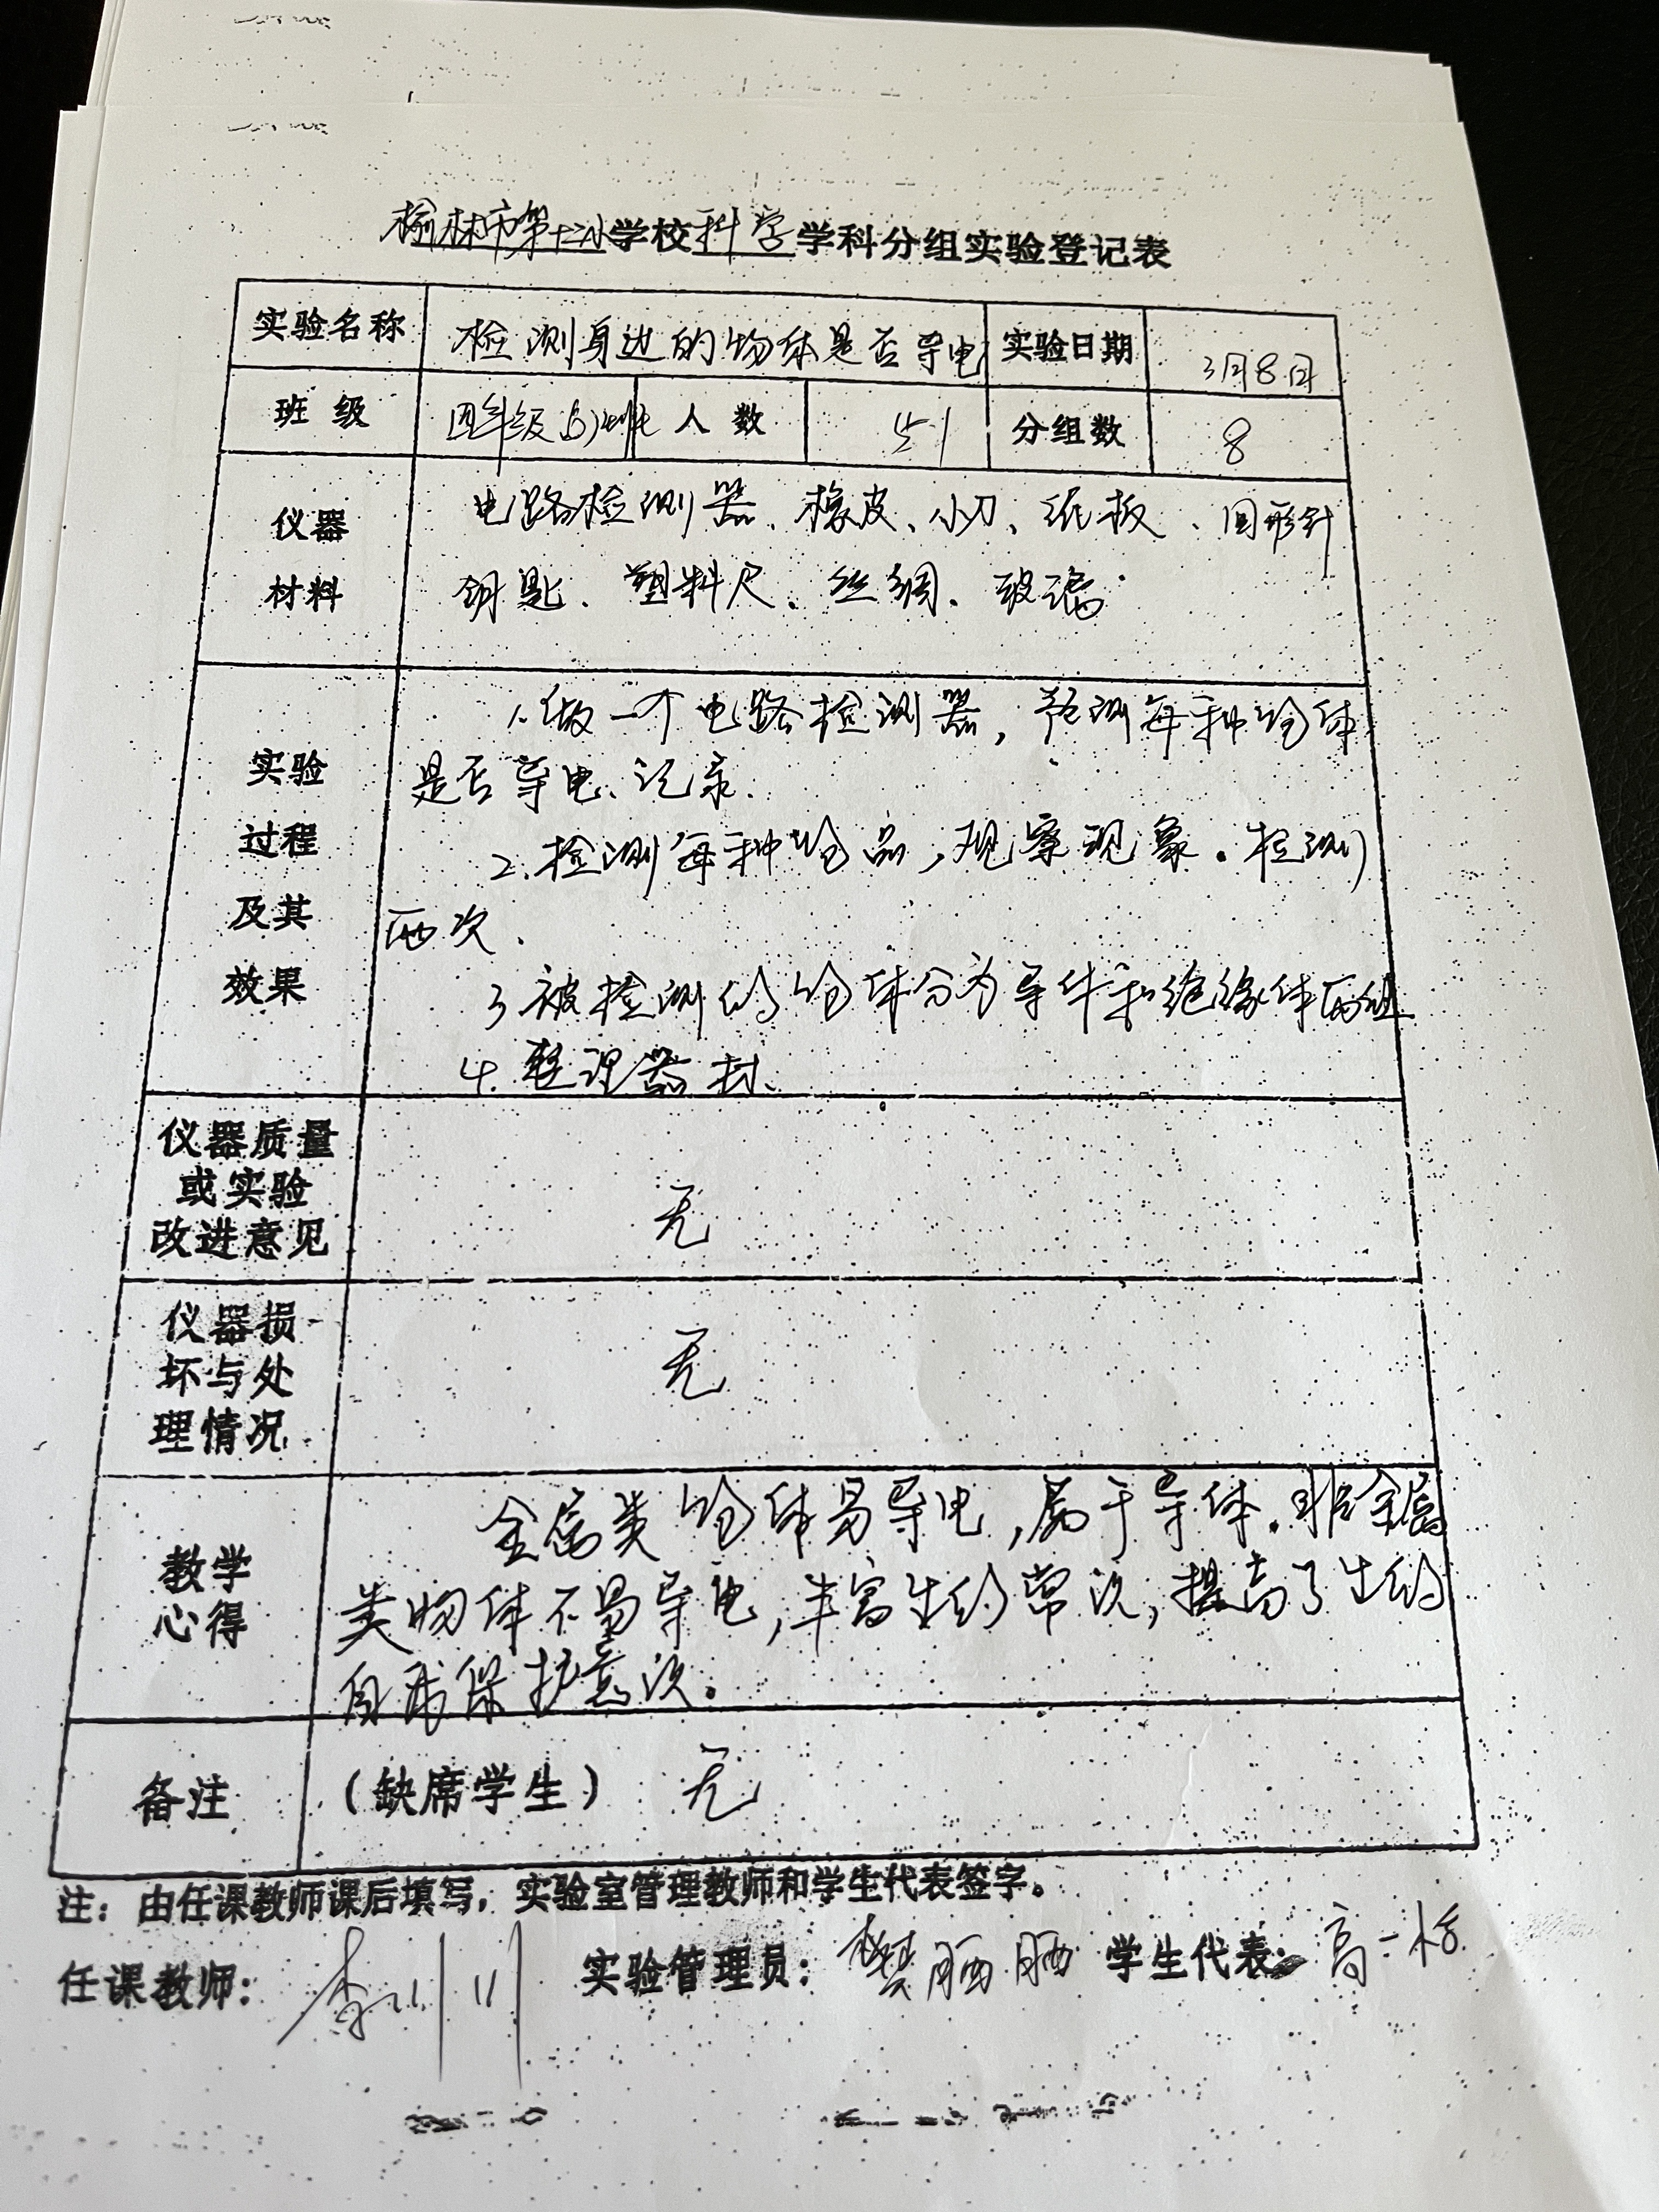 榆林市第十二小学校科学学科分组实验登记表
实验名称 检测身边的物体是否导电 实验日期 3月8日
班级 四年级 人数 51 分组数 8
仪器材料 电路检测器、橡皮、小刀、纸板、回形针
钥匙、塑料尺、丝绸、玻璃
实验过程及其效果 1.做一个电路检测器,预测每种物体
是否导电、记录.
2.检测每种物品,观察现象.检测
两次.
3.被检测的物体分为导体和绝缘体两组
4.整理器材.
仪器质量
或实验
改进意见 无
仪器损
坏与处
理情况 无
教学心得 金属类物体易导电,属于导体.非金属
类物体不易导电,丰富生的常识,提高了生的
自我保护意识。
备注 (缺席学生) 无
注:由任课教师课后填写,实验室管理教师和学生代表签字。
任课教师: 李川川 实验管理员: 樊丽丽 学生代表: 高一